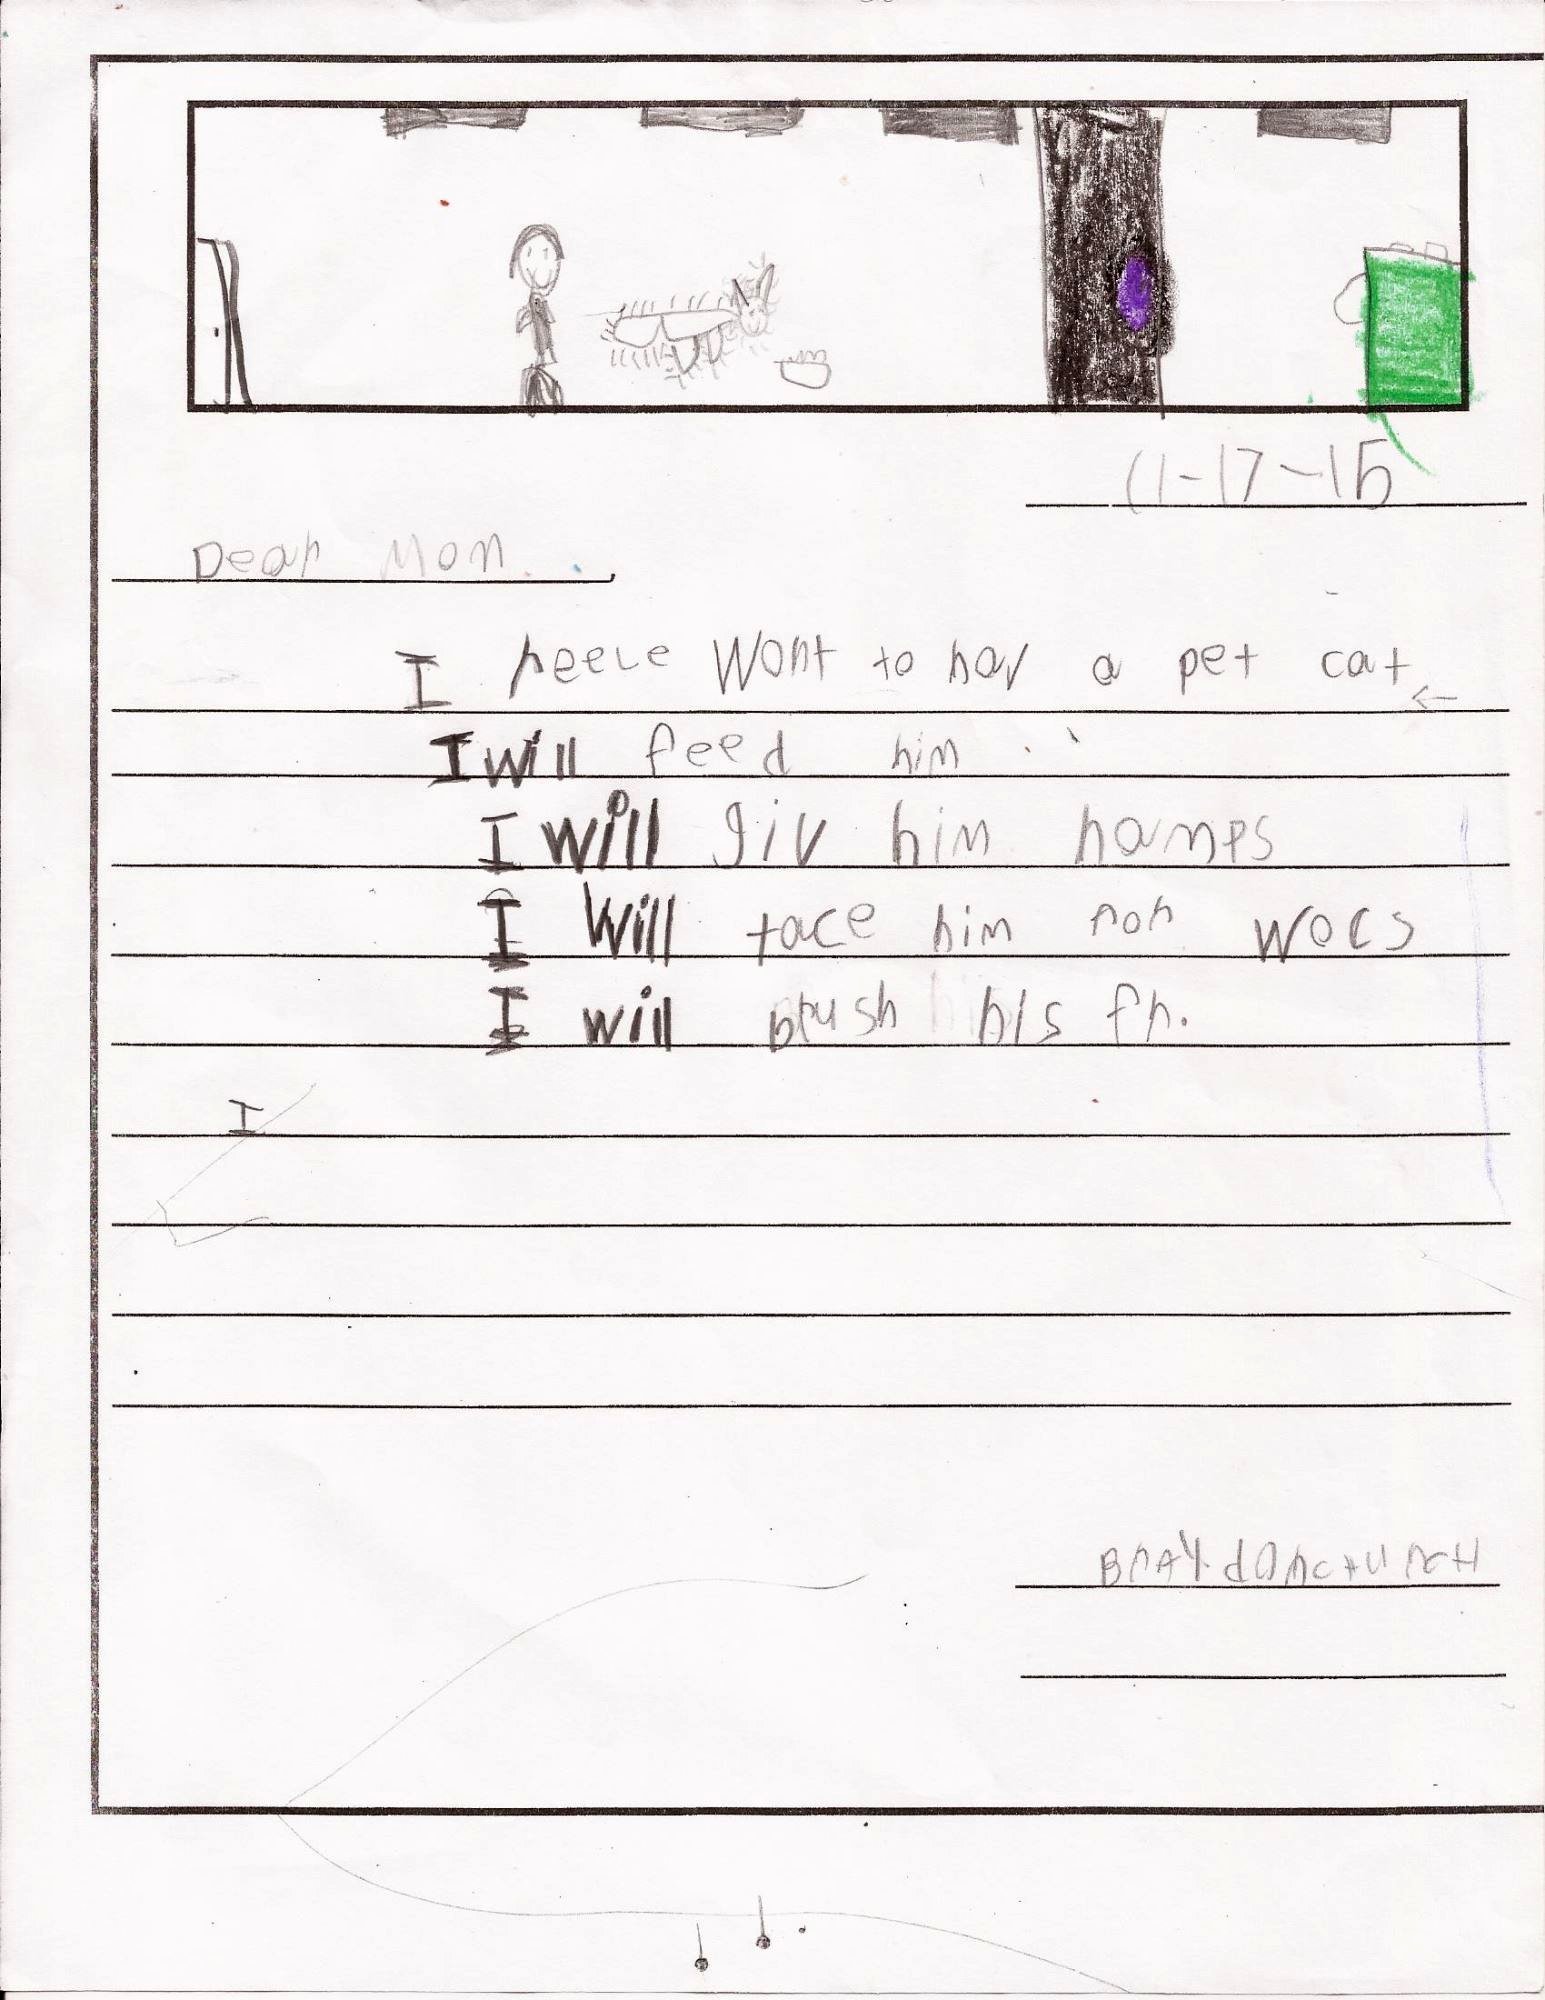 11-17-15
Dear Mom
I reele Wont to hav a pet cat
I will feed him
I will giv him namps
I will tace him for wocs
I will brush his fr.
I